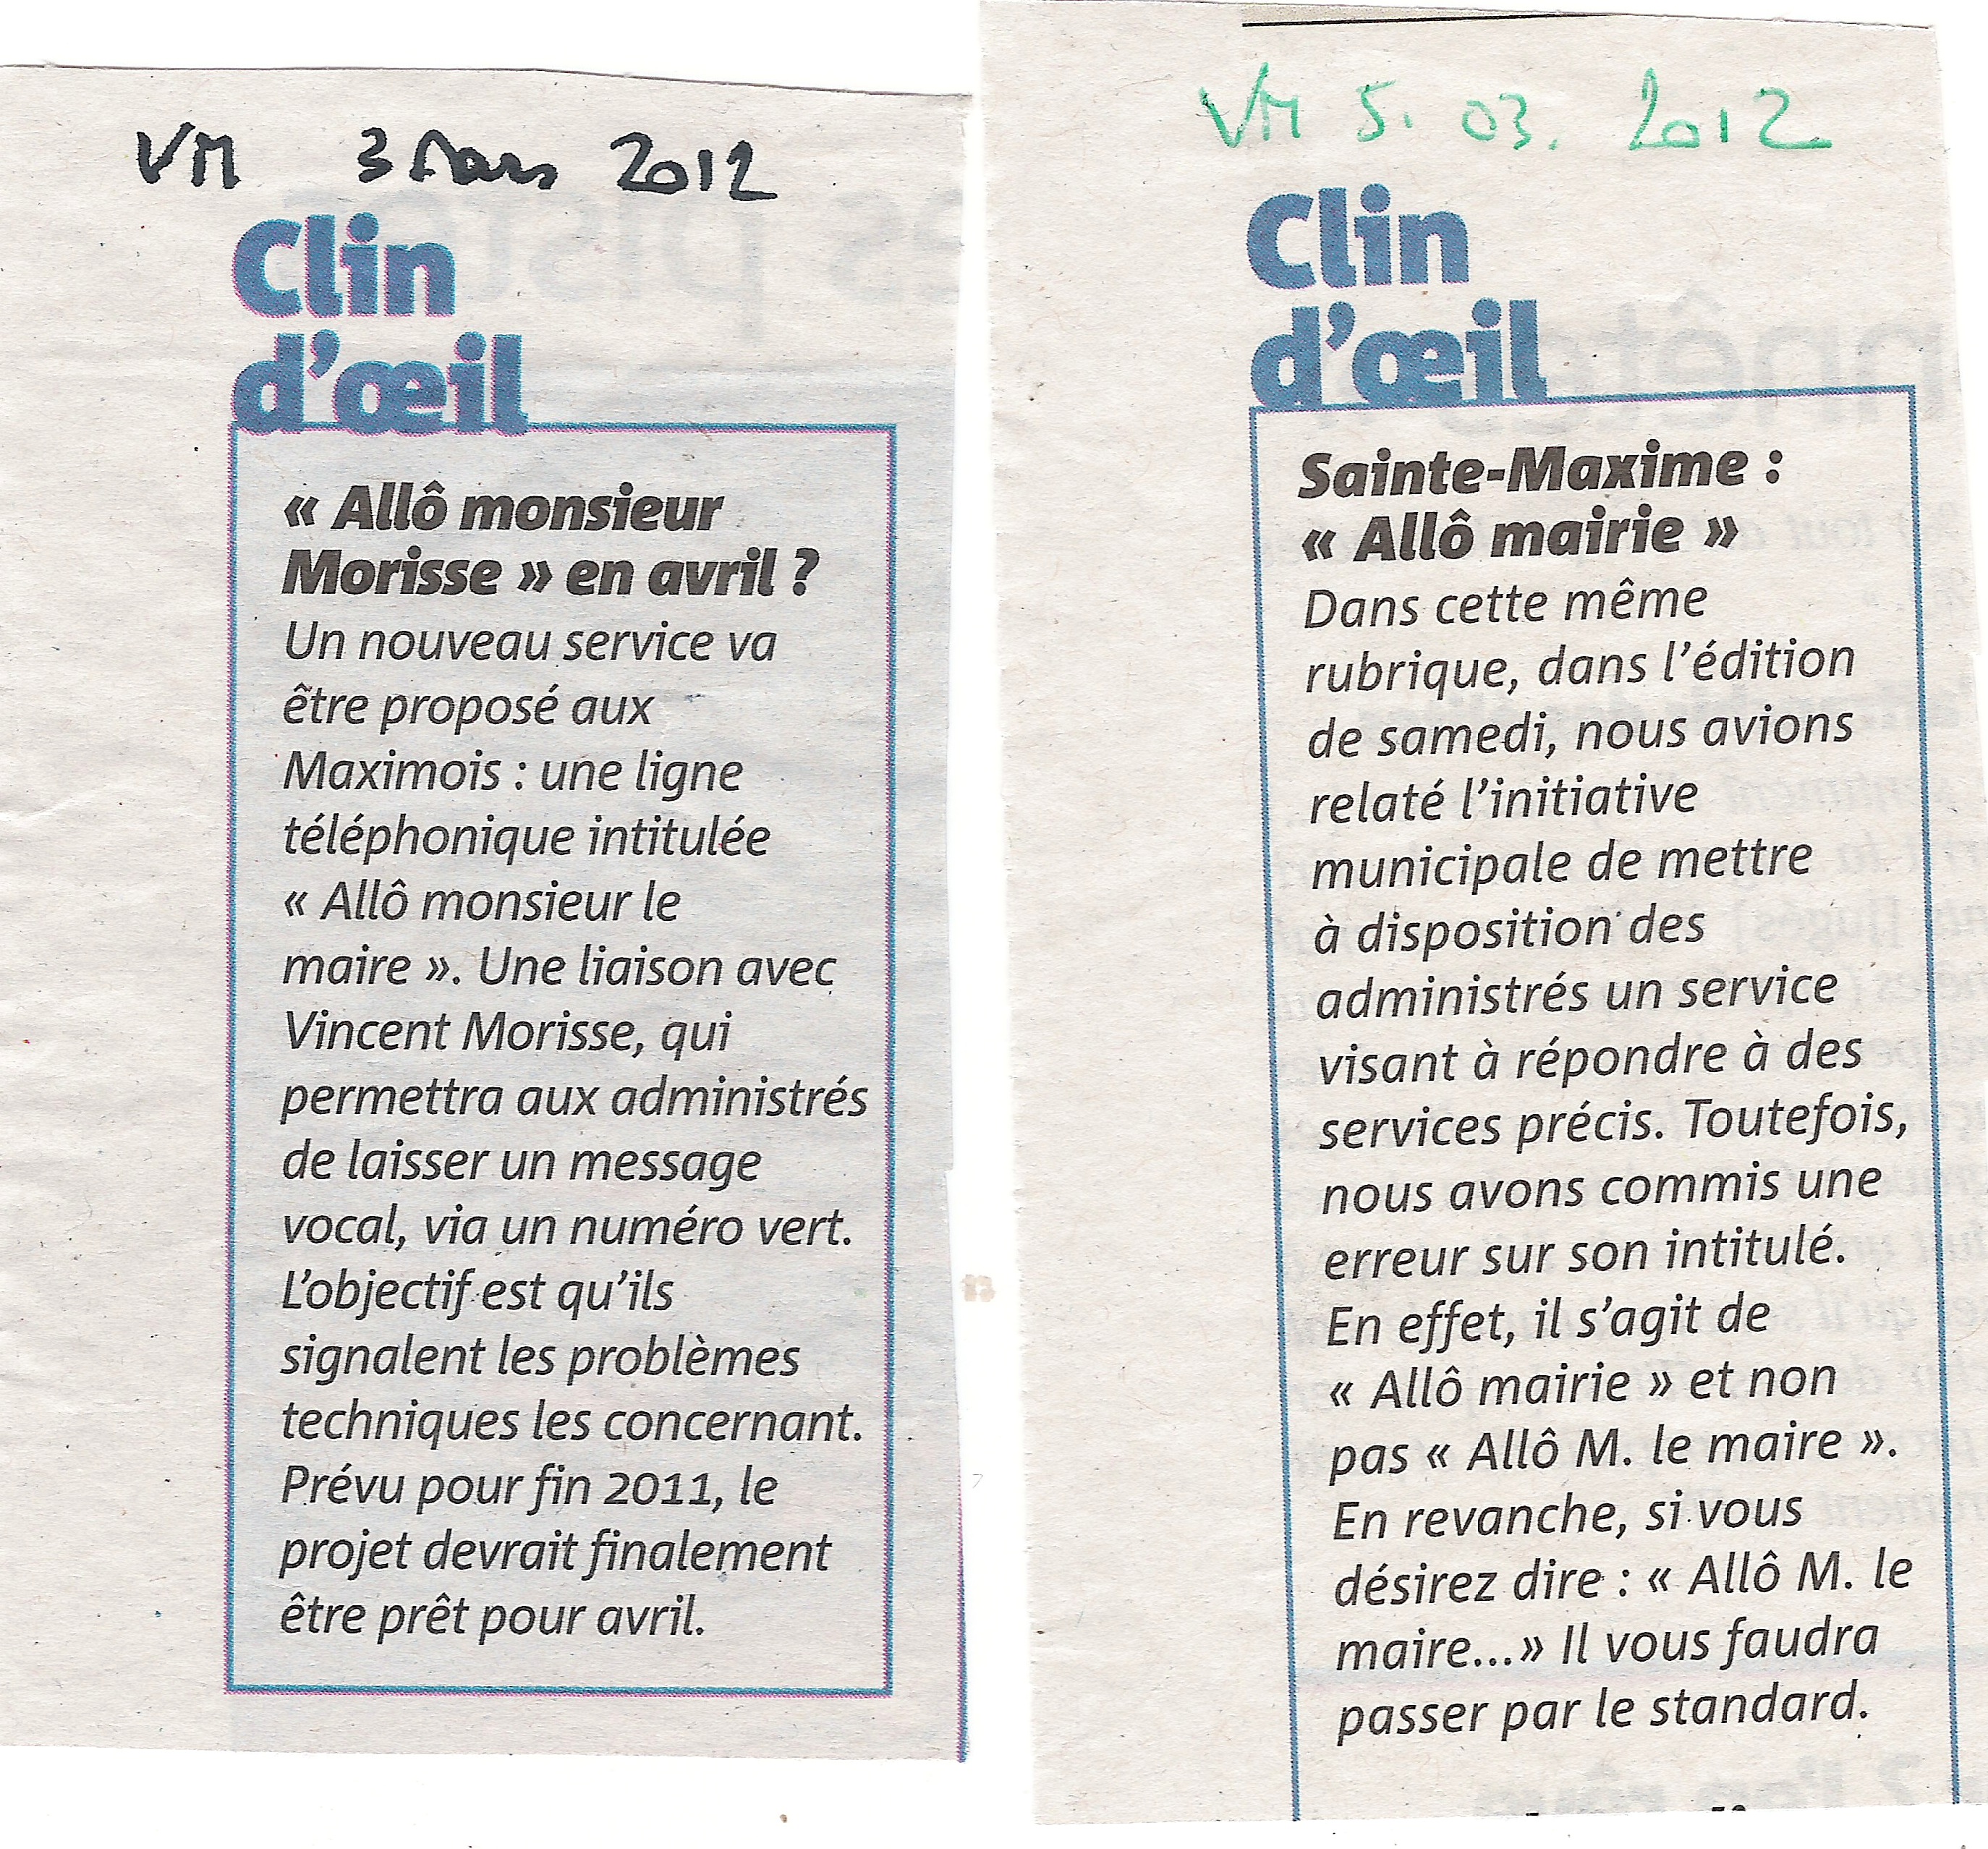 VM 3 Mars 2012
Clin
d'œil
« Allô monsieur
Morisse » en avril ?
Un nouveau service va
être proposé aux
Maximois : une ligne
téléphonique intitulée
« Allô monsieur le
maire ». Une liaison avec
Vincent Morisse, qui
permettra aux administrés
de laisser un message
vocal, via un numéro vert.
L'objectif est qu'ils
signalent les problèmes
techniques les concernant.
Prévu pour fin 2011, le
projet devrait finalement
être prêt pour avril.
VM 5. 03. 2012
Clin
d'œil
Sainte-Maxime :
« Allô mairie »
Dans cette même
rubrique, dans l'édition
de samedi, nous avions
relaté l'initiative
municipale de mettre
à disposition des
administrés un service
visant à répondre à des
services précis. Toutefois,
nous avons commis une
erreur sur son intitulé.
En effet, il s'agit de
« Allô mairie » et non
pas « Allô M. le maire ».
En revanche, si vous
désirez dire : « Allô M. le
maire...» Il vous faudra
passer par le standard.